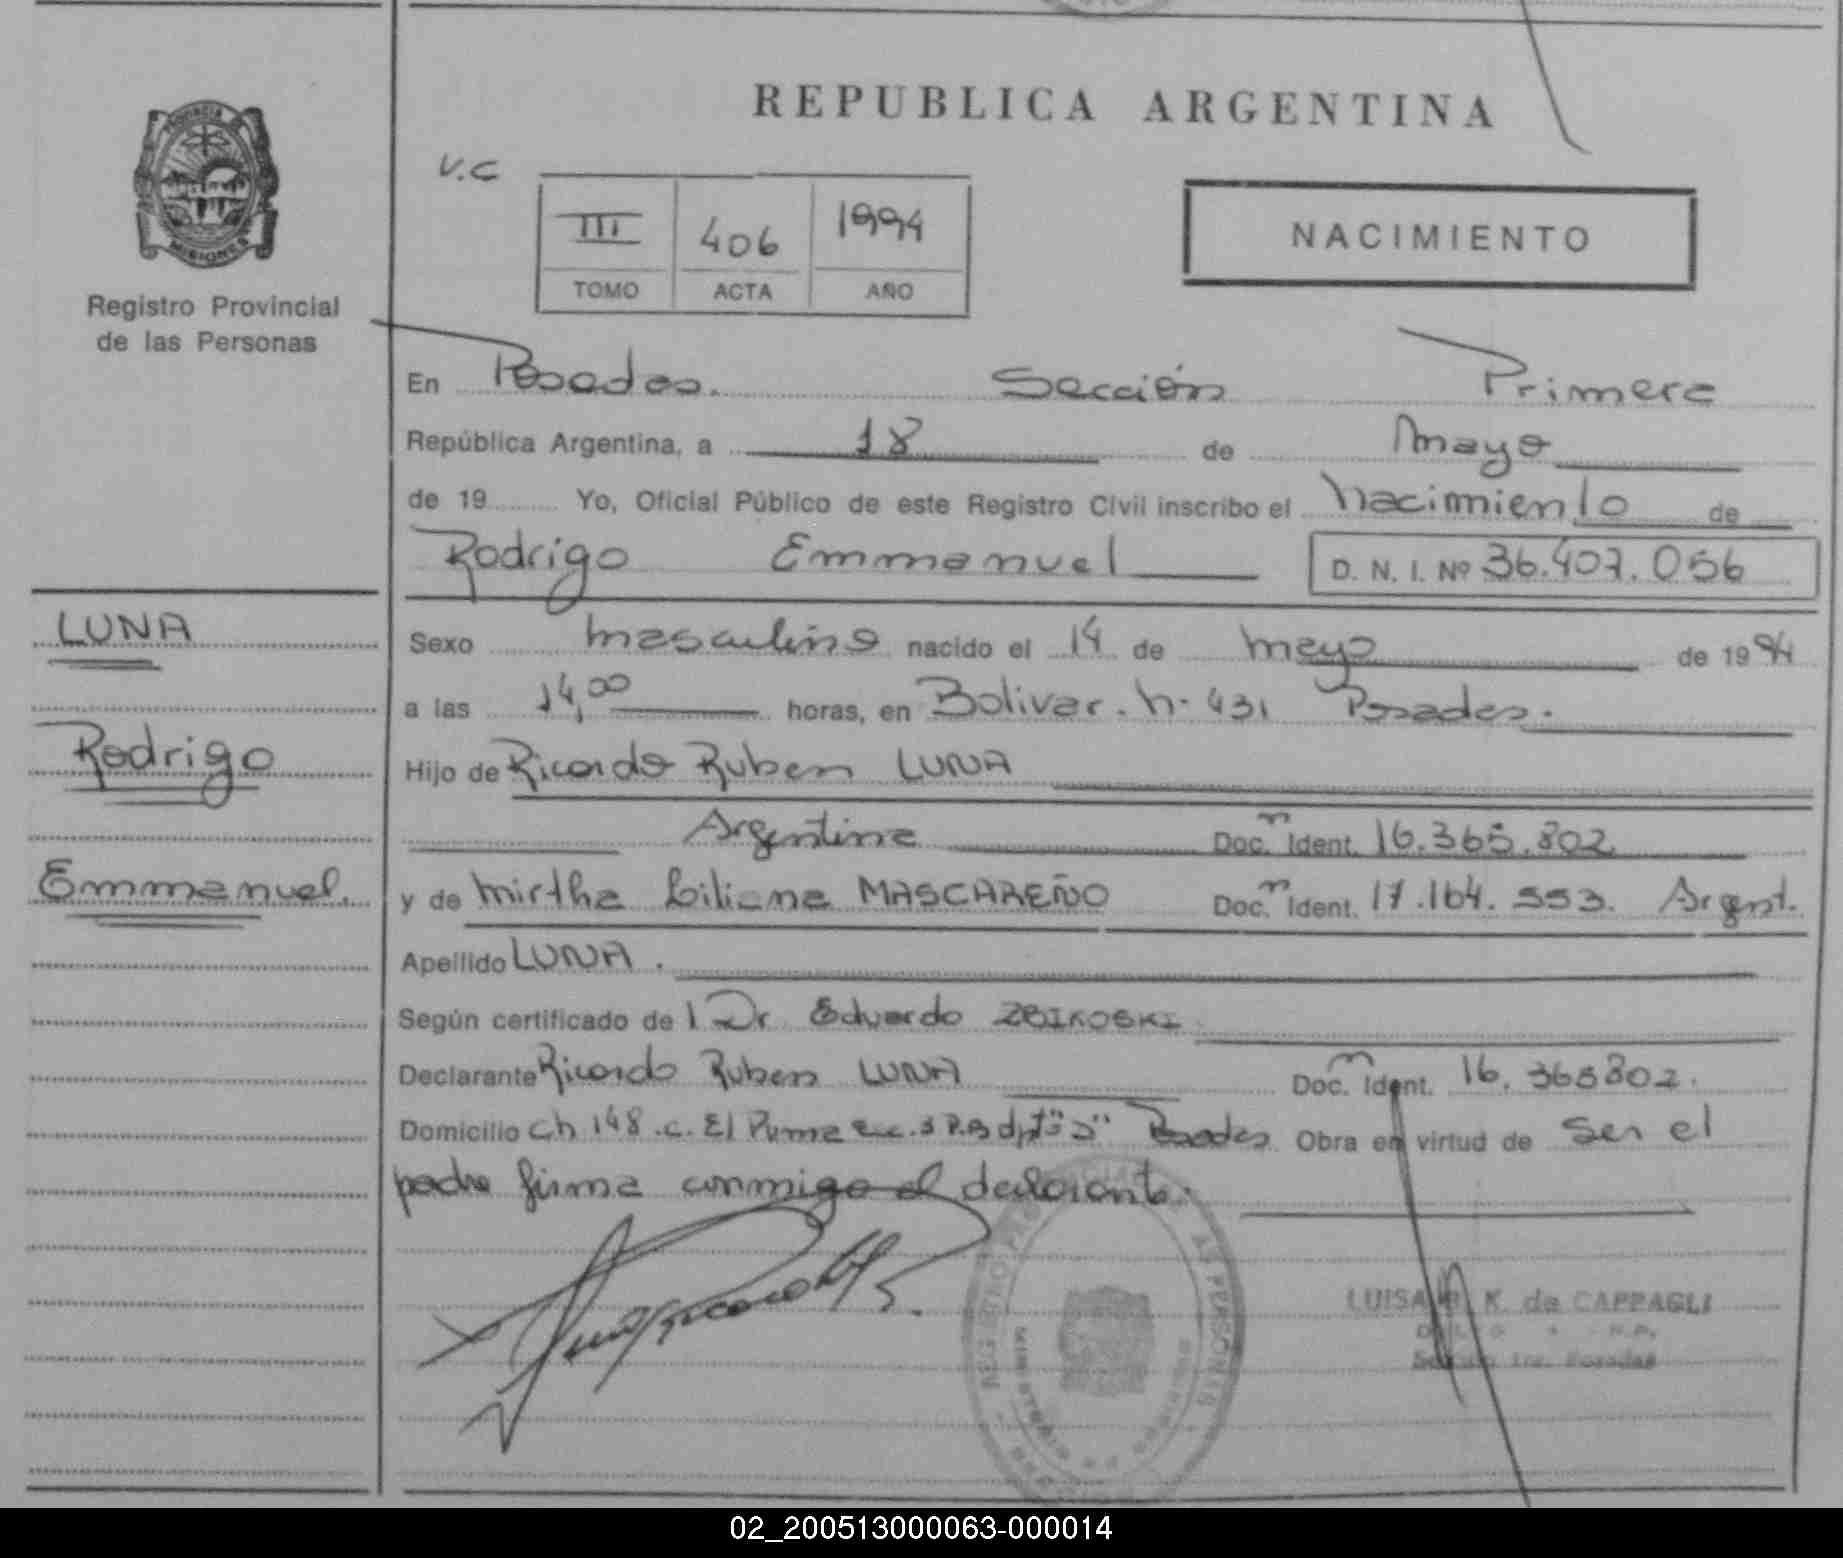 REPUBLICA ARGENTINA
PROVINCIA DE
MISIONES
Registro Provincial
de las Personas
V.C
III 406 1994
TOMO ACTA AÑO
NACIMIENTO
En Posadas. Sección Primera
República Argentina, a 18 de Mayo
de 19 Yo, Oficial Público de este Registro Civil inscribo el Nacimiento de
Rodrigo Emmanuel D. N. I. Nº 36.407.056
LUNA
Rodrigo
Emmanuel.
Sexo masculino nacido el 14 de mayo de 1994
a las 14,00 horas, en Bolivar. N- 431 Posadas.
Hijo de Ricardo Ruben LUNA
Argentina Doc. n Ident. 16.365.802
y de Mirtha Liliana MASCAREÑO Doc. n Ident. 17.164.553. Argent.
Apellido LUNA.
Según certificado de l Dr Eduardo ZBIKOSKI
Declarante Ricardo Ruben LUNA Doc. n Ident. 16.365802.
Domicilio Ch 148 .c. El Puma esc. 3 P.B dpt "a" Posadas Obra en virtud de ser el
padre firma conmigo el declarante.
LUISA K. de CAPPAGLI
Posadas
02_200513000063-000014